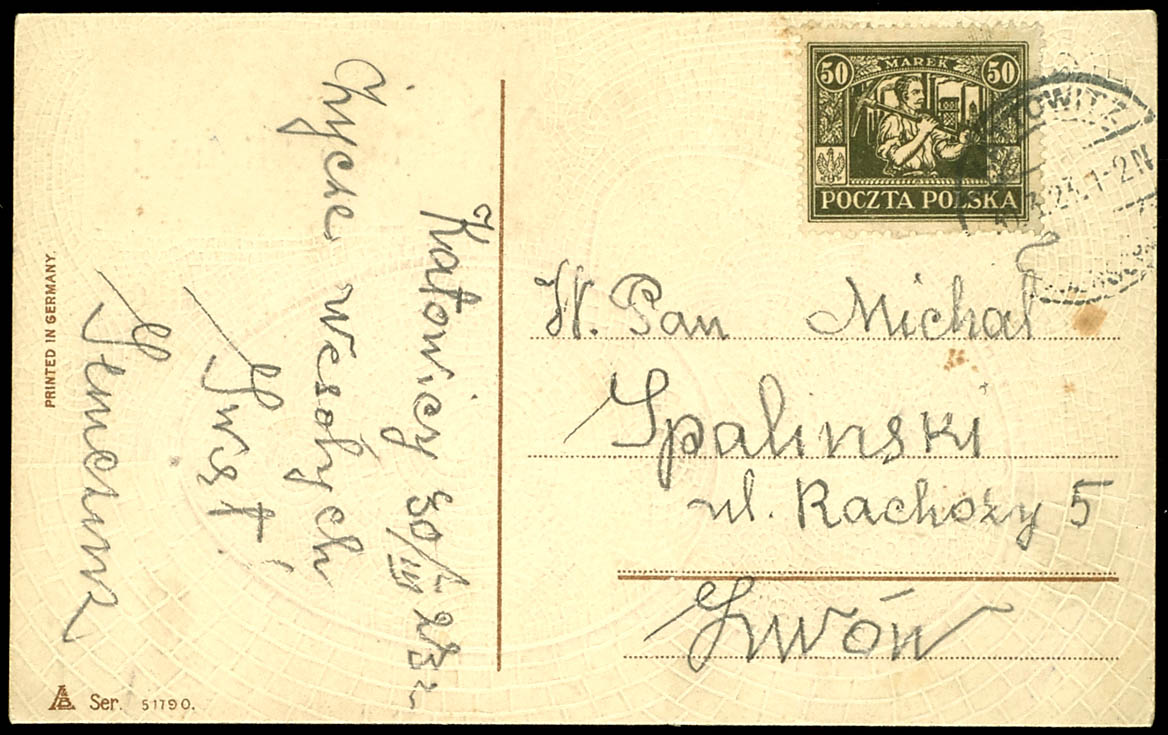 Katowicy 30/III 23 r.
Życze wesołych
Świąt
PRINTED IN GERMANY.
Ser. 51790.
50 MAREK 50
POCZTA POLSKA
23.1-2N
W. Pan Michał
Spalinski
ul. Rachozy 5
Lwów